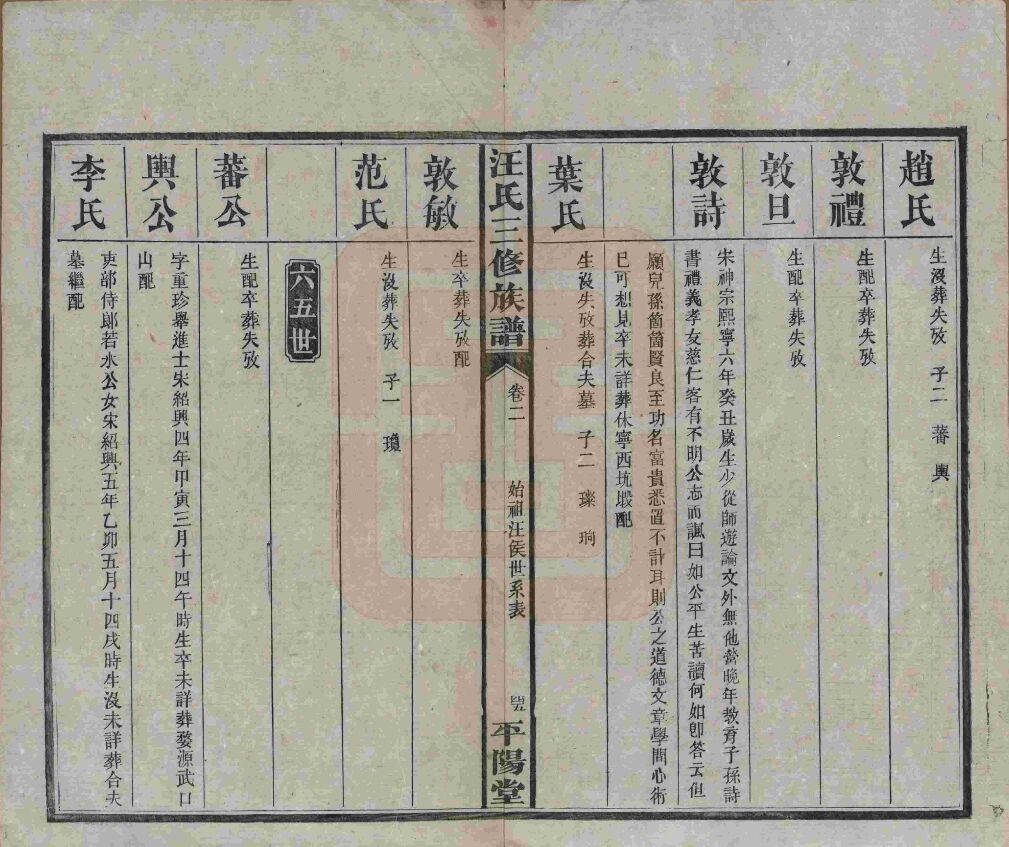 趙氏
生沒葬失攷　子二　蕃　輿
敦禮
生配卒葬失攷
敦旦
生配卒葬失攷
敦詩
宋神宗熙寧六年癸丑歲生少從師遊論文外無他營晚年教育子孫詩
書禮義孝友慈仁客有不明公志而諷曰如公平生苦讀何如卽答云但
願兒孫箇箇賢良至功名富貴悉置不計耳則公之道德文章學問心術
已可想見卒未詳葬休寧西坑塅配
葉氏
生沒失攷葬合夫墓　子二　璨　珦
汪氏三修族譜
卷二
始祖汪侯世系表
平陽堂
敦敏
生卒葬失攷配
范氏
生沒葬失攷　子一　瓊
六五世
蕃公
生配卒葬失攷
輿公
字重珍舉進士宋紹興四年甲寅三月十四午時生卒未詳葬婺源武口
山配
李氏
吏部侍郎若水公女宋紹興五年乙卯五月十四戌時生沒未詳葬合夫
墓繼配